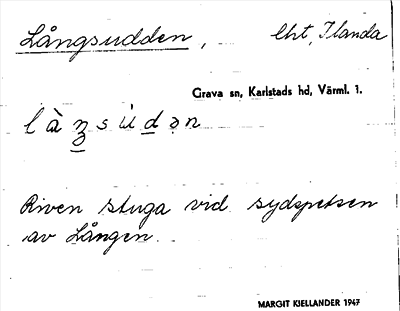 Långsudden, Lht, Ilanda
Grava sn, Karlstads hd, Värml. 1.
Riven stuga vid sydspetsen
av Lången.
MARGIT KJELLANDER 1947